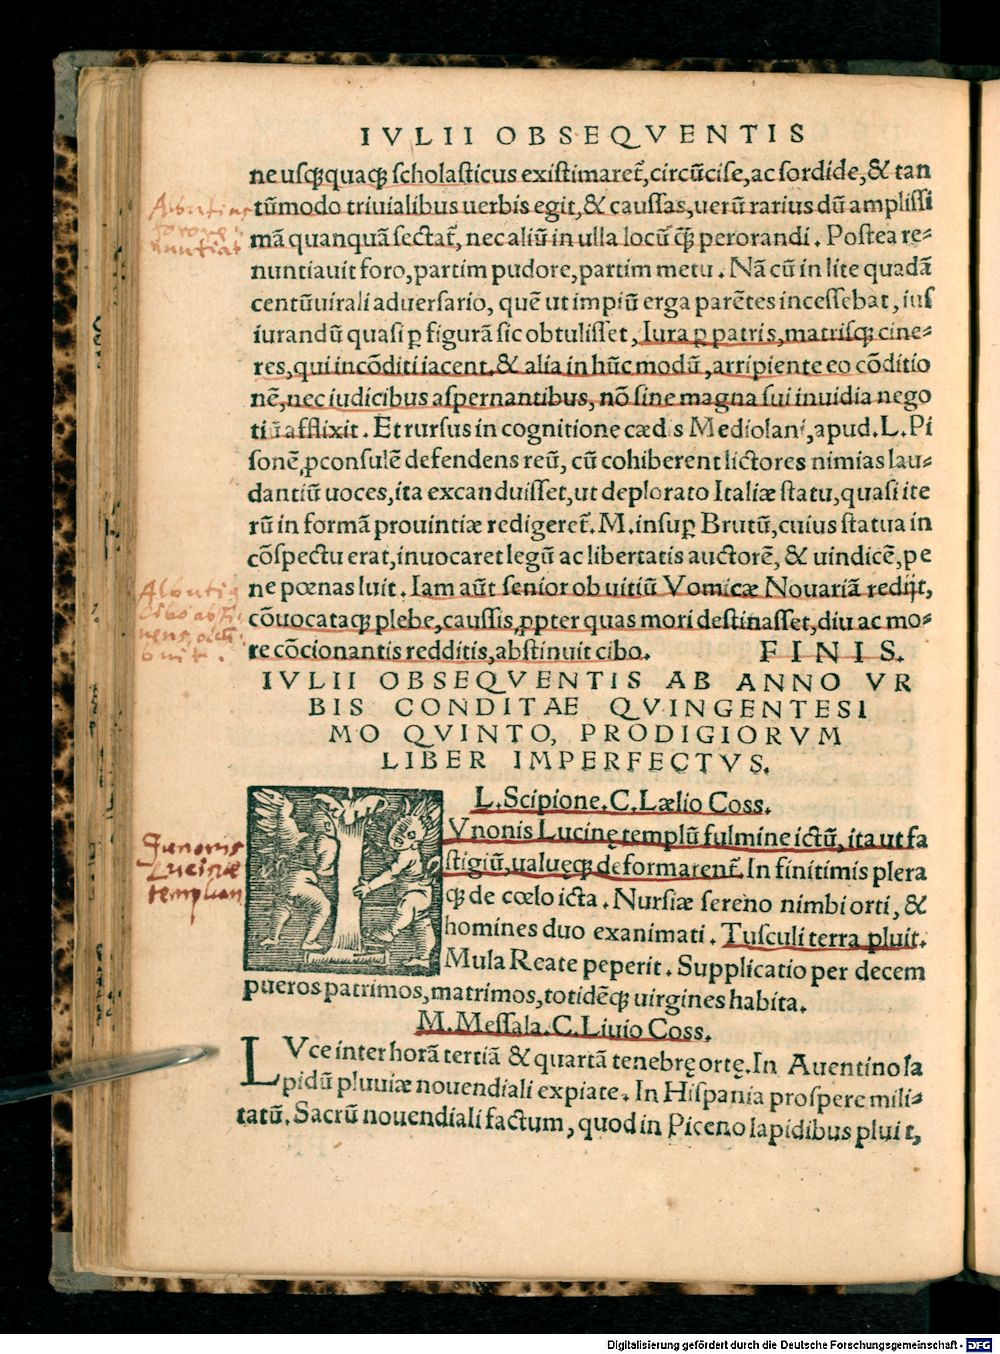 IVLII OBSEQVENTIS
ne usq̃quaq̃ scholasticus existimaret̃, circũcise, ac sordide, & tan
tũmodo triuialibus uerbis egit, & caussas, uerũ rarius dũ amplissi
mã quanquã sectat̃, nec aliũ in ulla locũ q̃ perorandi. Postea re-
nuntiauit foro, partim pudore, partim metu. Nã cũ in lite quadã
centũuirali aduersario, quẽ ut impiũ erga parẽtes incessebat, ius
iurandũ quasi ꝑ figurã sic obtulisset, Iura ꝑ patris, matrisq̃ cine-
res, qui incõditi iacent. & alia in hũc modũ, arripiente eo cõditio
nẽ, nec iudicibus aspernantibus, nõ sine magna sui inuidia nego
tiũ afflixit. Et rursus in cognitione cædis Mediolani, apud. L. Pi
sonẽ ꝓconsulẽ defendens reũ, cũ cohiberent lictores nimias lau-
dantiũ uoces, ita excanduisset, ut deplorato Italiæ statu, quasi ite
rũ in formã prouintiæ redigeret̃. M. insuꝑ Brutũ, cuius statua in
cõspectu erat, inuocaret legũ ac libertatis auctorẽ, & uindicẽ, pe
ne pœnas luit. Iam aũt senior ob uitiũ Vomicæ Nouariã redijt,
cõuocataq̃ plebe, caussis, ꝓpter quas mori destinasset, diu ac mo-
re cõcionantis redditis, abstinuit cibo. FINIS.
IVLII OBSEQVENTIS AB ANNO VR
BIS CONDITAE QVINGENTESI
MO QVINTO, PRODIGIORVM
LIBER IMPERFECTVS.
L. Scipione. C. Lælio Coss.
Vnonis Lucinę templũ fulmine ictũ, ita ut fa
stigiũ, ualuęq̃ deformarent̃. In finitimis plera
q̃ de cœlo icta. Nursiæ sereno nimbi orti, &
homines duo exanimati. Tusculi terra pluit.
Mula Reate peperit. Supplicatio per decem
pueros patrimos, matrimos, totidẽq̃ uirgines habita.
M. Messala. C. Liuio Coss.
LVce inter horã tertiã & quartã tenebrę ortę. In Auentino la
pidũ pluuiæ nouendiali expiate. In Hispania prospere mili-
tatũ. Sacrũ nouendiali factum, quod in Piceno lapidibus pluit,
Albutius
foro re-
nuntiat
Albutius
cibo absti
nens, occu
buit.
Junonis
Lucinæ
templum
Digitalisierung gefördert durch die Deutsche Forschungsgemeinschaft - DFG